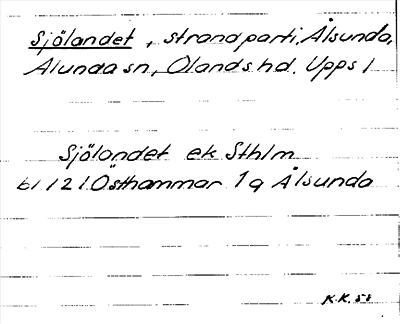 Sjölandet, strandparti, Ålsunda,
Alunda sn, Olands hd. Upps l
Sjölandet ek Sthlm
bl 121 Östhammar 1q Ålsunda
K.K. 58